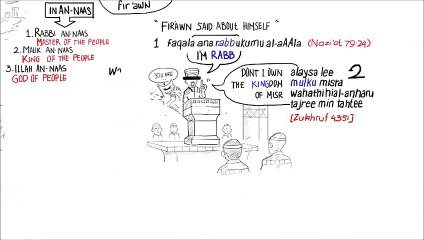 fir'awn
IN AN-NAAS
1. RABBI AN-NAAS
MASTER OF THE PEOPLE
2. MALIK AN-NAAS
KING OF THE PEOPLE
3. ILLAH AN-NAAS
GOD OF PEOPLE
W
"FIRAWN SAID ABOUT HIMSELF"
1 Faqala ana rabbukumu al-aAAla (Nazi'at 79:24)
I'M RABB
YOU ARE
DONT I OWN
THE KINGDOM
OF MISR
2
alaysa lee
mulku misra
wahathihi al-anharu
tajree min tahtee
[Zukhruf 43:51]